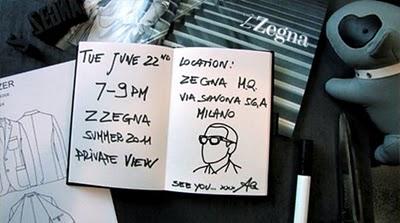 ZZegna
ZEGNA
ZER
TUE JUNE 22ND
7-9 PM
ZZEGNA
SUMMER 2011
PRIVATE VIEW
LOCATION:
ZEGNA H.Q.
VIA SAVONA 56,A
MILANO
SEE YOU... xxx